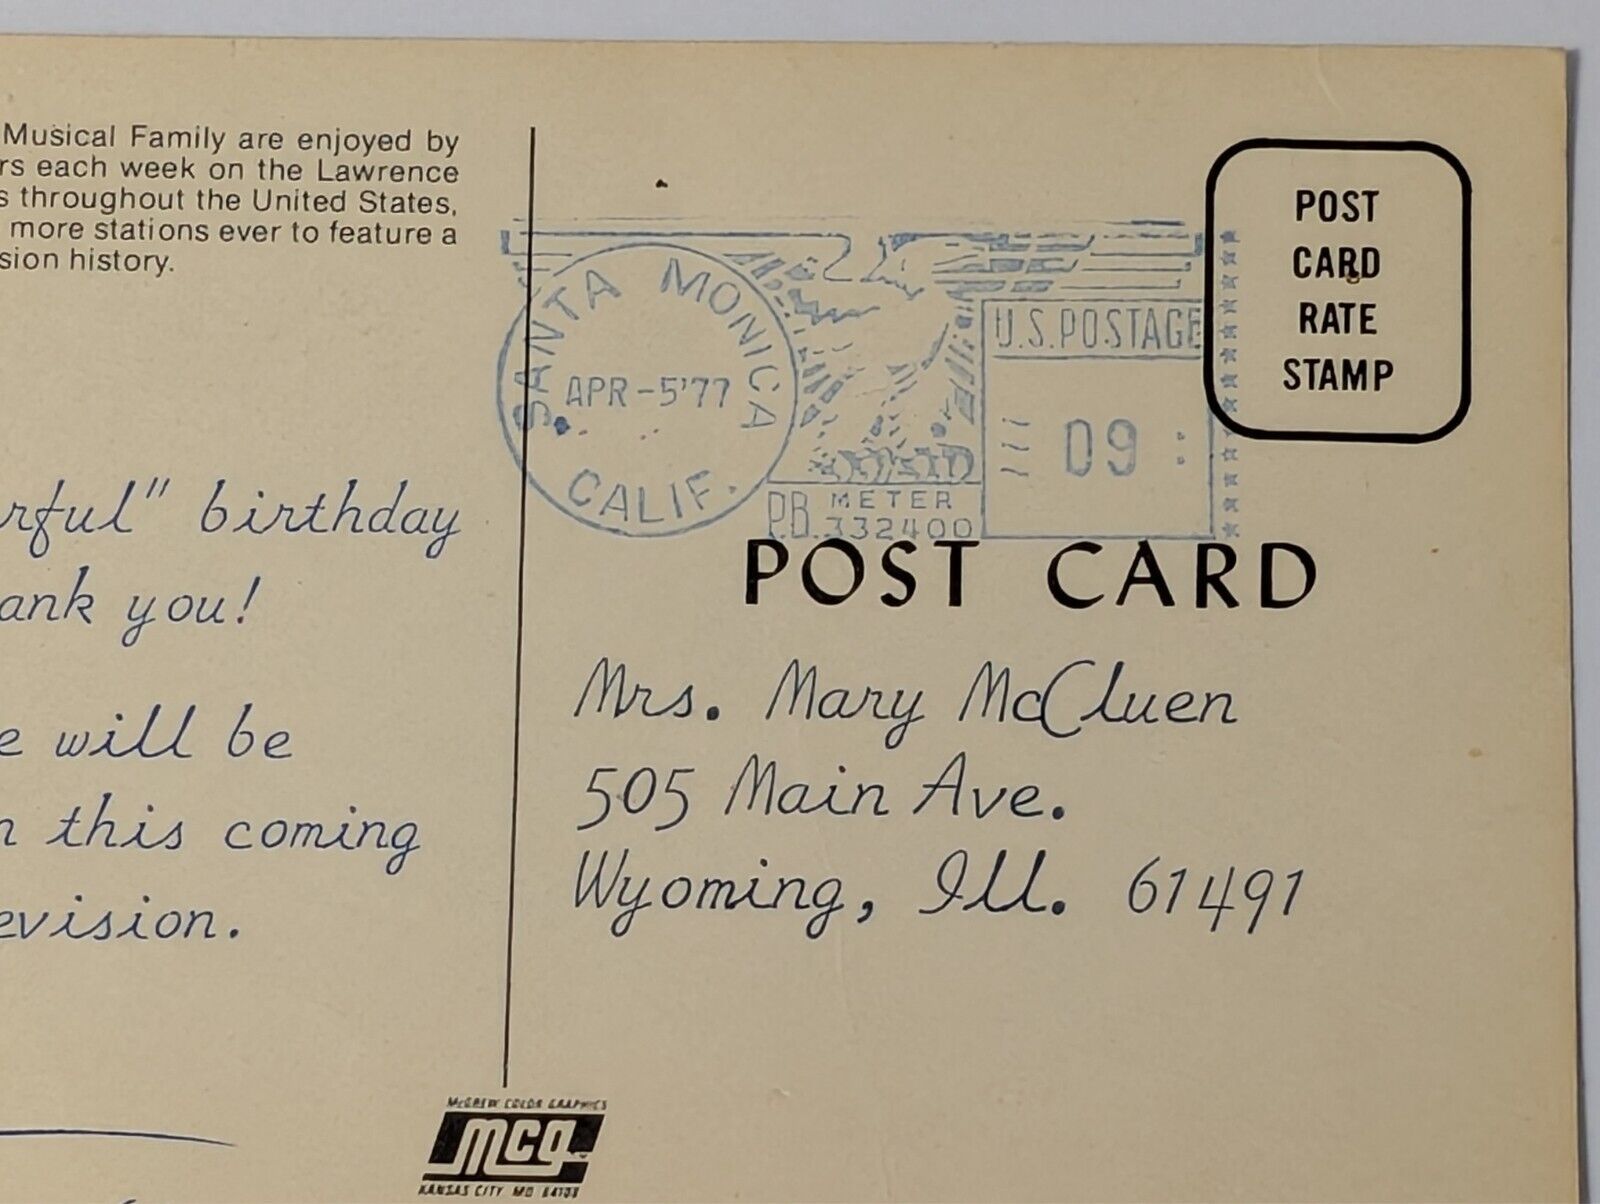 Musical Family are enjoyed by
rs each week on the Lawrence
s throughout the United States,
more stations ever to feature a
sion history.
rful" birthday
ank you!
e will be
n this coming
evision.
SANTA MONICA
APR-5'77
CALIF.
P.B. METER
332400
U.S.POSTAGE
09
POST
CARD
RATE
STAMP
POST CARD
Mrs. Mary McCluen
505 Main Ave.
Wyoming, Ill. 61491
McGREW COLOR GRAPHICS
mcg
KANSAS CITY, MO 64108